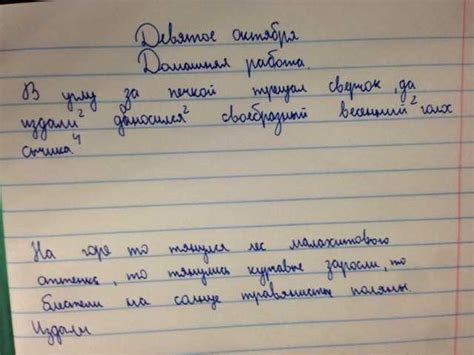 Девятое октября
Домашняя работа.
В углу за печкой трещал сверчок, да
издали² доносился² своебразный весенний² голх
сычика⁴
На горе то тянулся лес малахитового
оттенка, то тянулись курчавые заросли, то
блестели на солнце травянистые поляны.
Издали